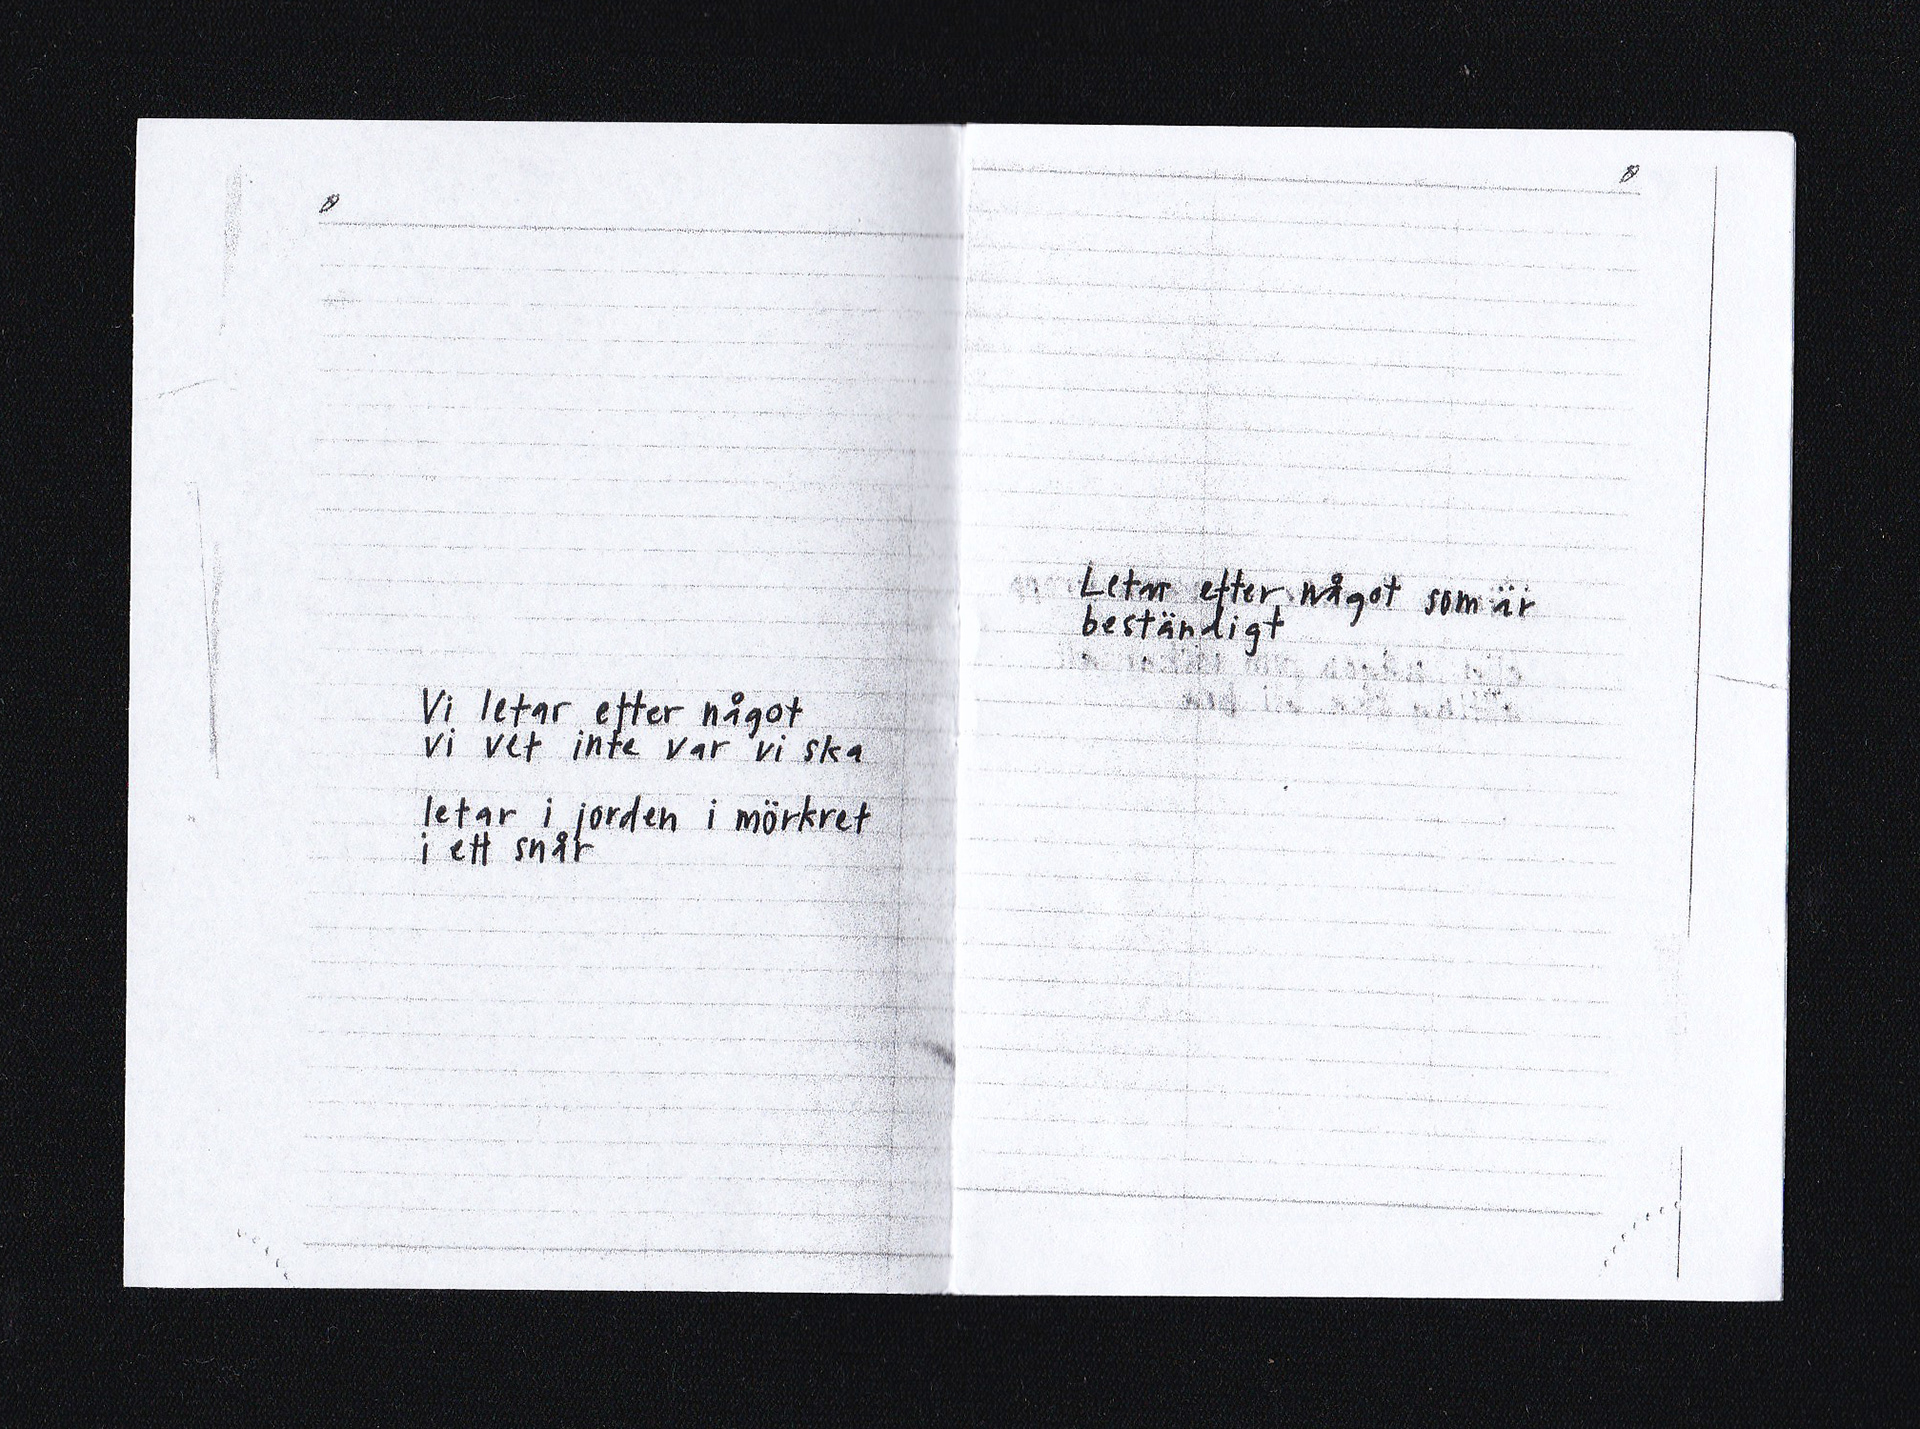 Vi letar efter något
vi vet inte var vi ska
letar i jorden i mörkret
i ett snår
Letar efter något som är
beständigt